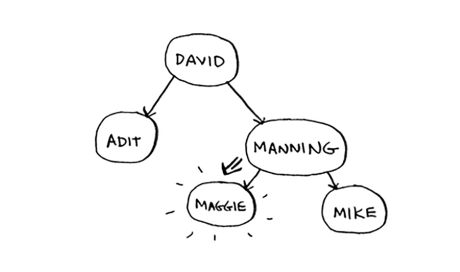 DAVID
ADIT
MANNING
MAGGIE
MIKE